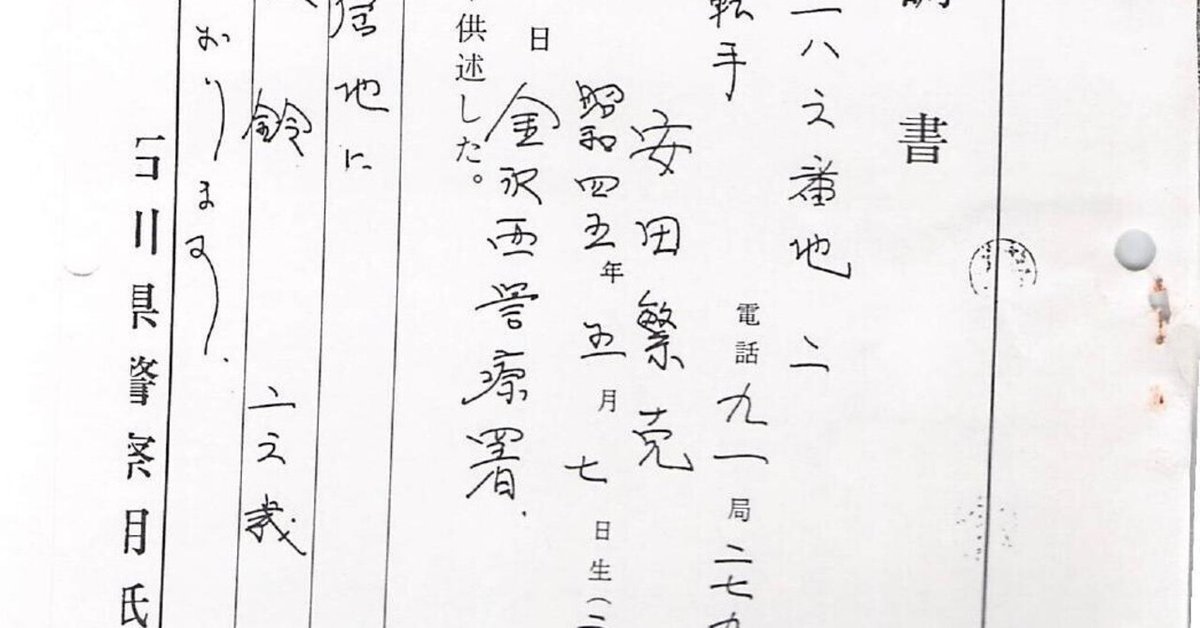 書
一八之番地 二
転手 電話 九一 局 二七九
安田繁克
昭和四五年 五月 七日生(二
日 金沢西警察署.
供述した。
地に
鈴 二之歳
おります.
石川県警察